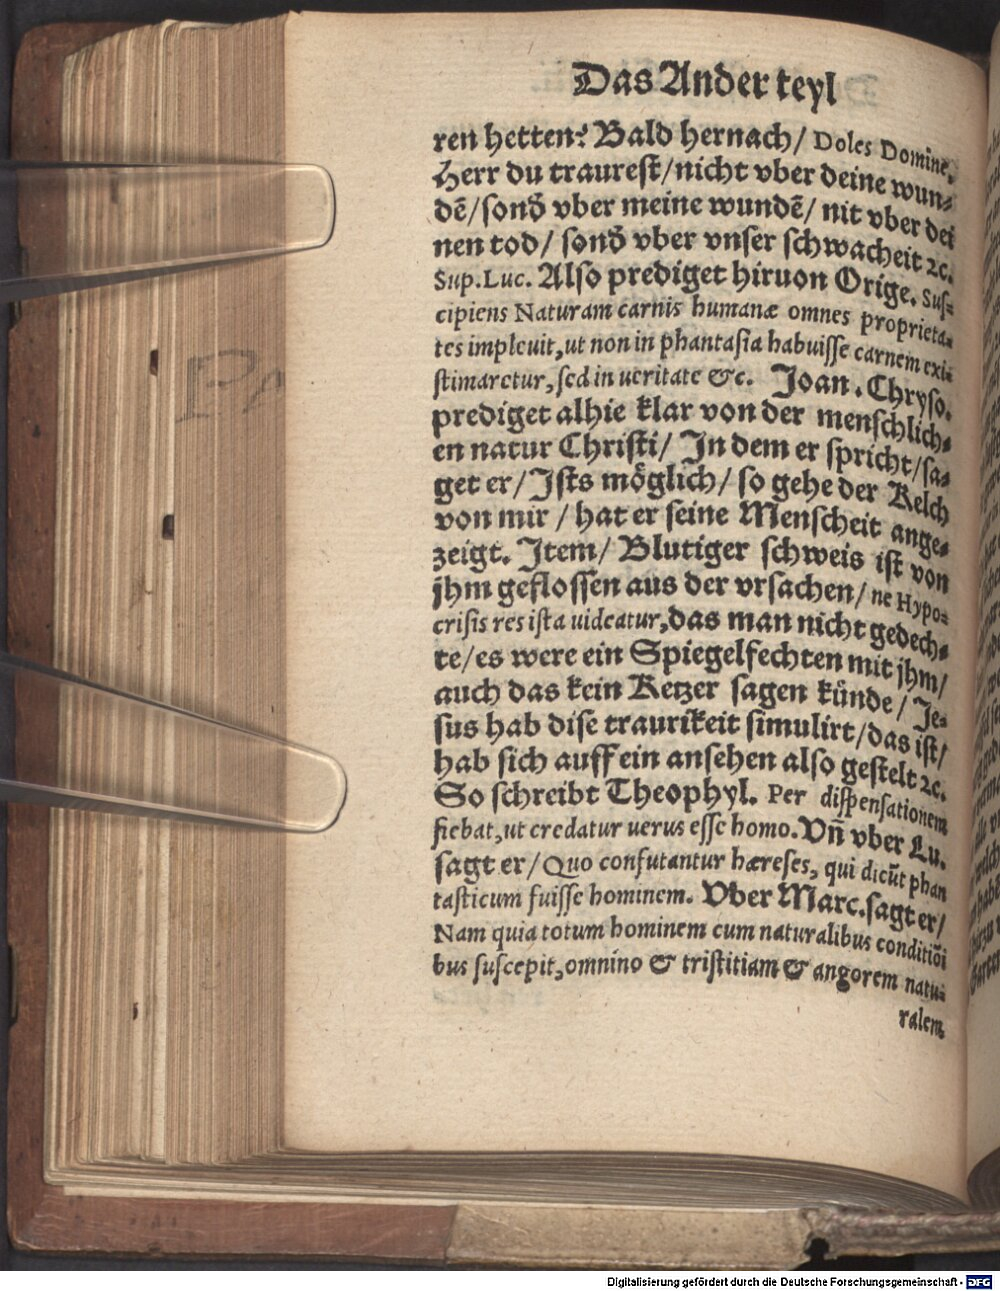 Das Ander teyl
ren hetten? Bald hernach/ Doles Domine,
Herr du traurest/nicht vber deine wun-
dē/sonđ vber meine wundē/ nit vber dei
nen tod/ sonđ vber vnser schwacheit ꝛc.
Sup.Luc. Also prediget hiruon Orige. Sus-
cipiens Naturam carnis humanæ omnes proprieta-
tes impleuit,ut non in phantasia habuisse carnem exi-
stimaretur,sed in ueritate &c. Joan. Chryso.
prediget alhie klar von der menschlich-
en natur Christi/ In dem er spricht/sa-
get er/Ists möglich/ so gehe der Kelch
von mir / hat er seine Menscheit ange-
zeigt. Item/ Blutiger schweis ist von
jhm geflossen aus der vrsachen/ne Hypo-
crisis res ista uideatur,das man nicht gedech-
te/es were ein Spiegelfechten mit jhm/
auch das kein Ketzer sagen künde/ Je-
sus hab dise traurikeit simulirt/das ist/
hab sich auff ein ansehen also gestelt ꝛc.
So schreibt Theophyl. Per dispensationem
fiebat,ut credatur uerus esse homo.Vñ vber Lu.
sagt er/Quo confutantur hæreses, qui dicūt phan
tasticum fuisse hominem. Vber Marc.sagt er/
Nam quia totum hominem cum naturalibus conditiōi
bus suscepit,omnino & tristitiam & angorem natu-
ralem
Digitalisierung gefördert durch die Deutsche Forschungsgemeinschaft - DFG